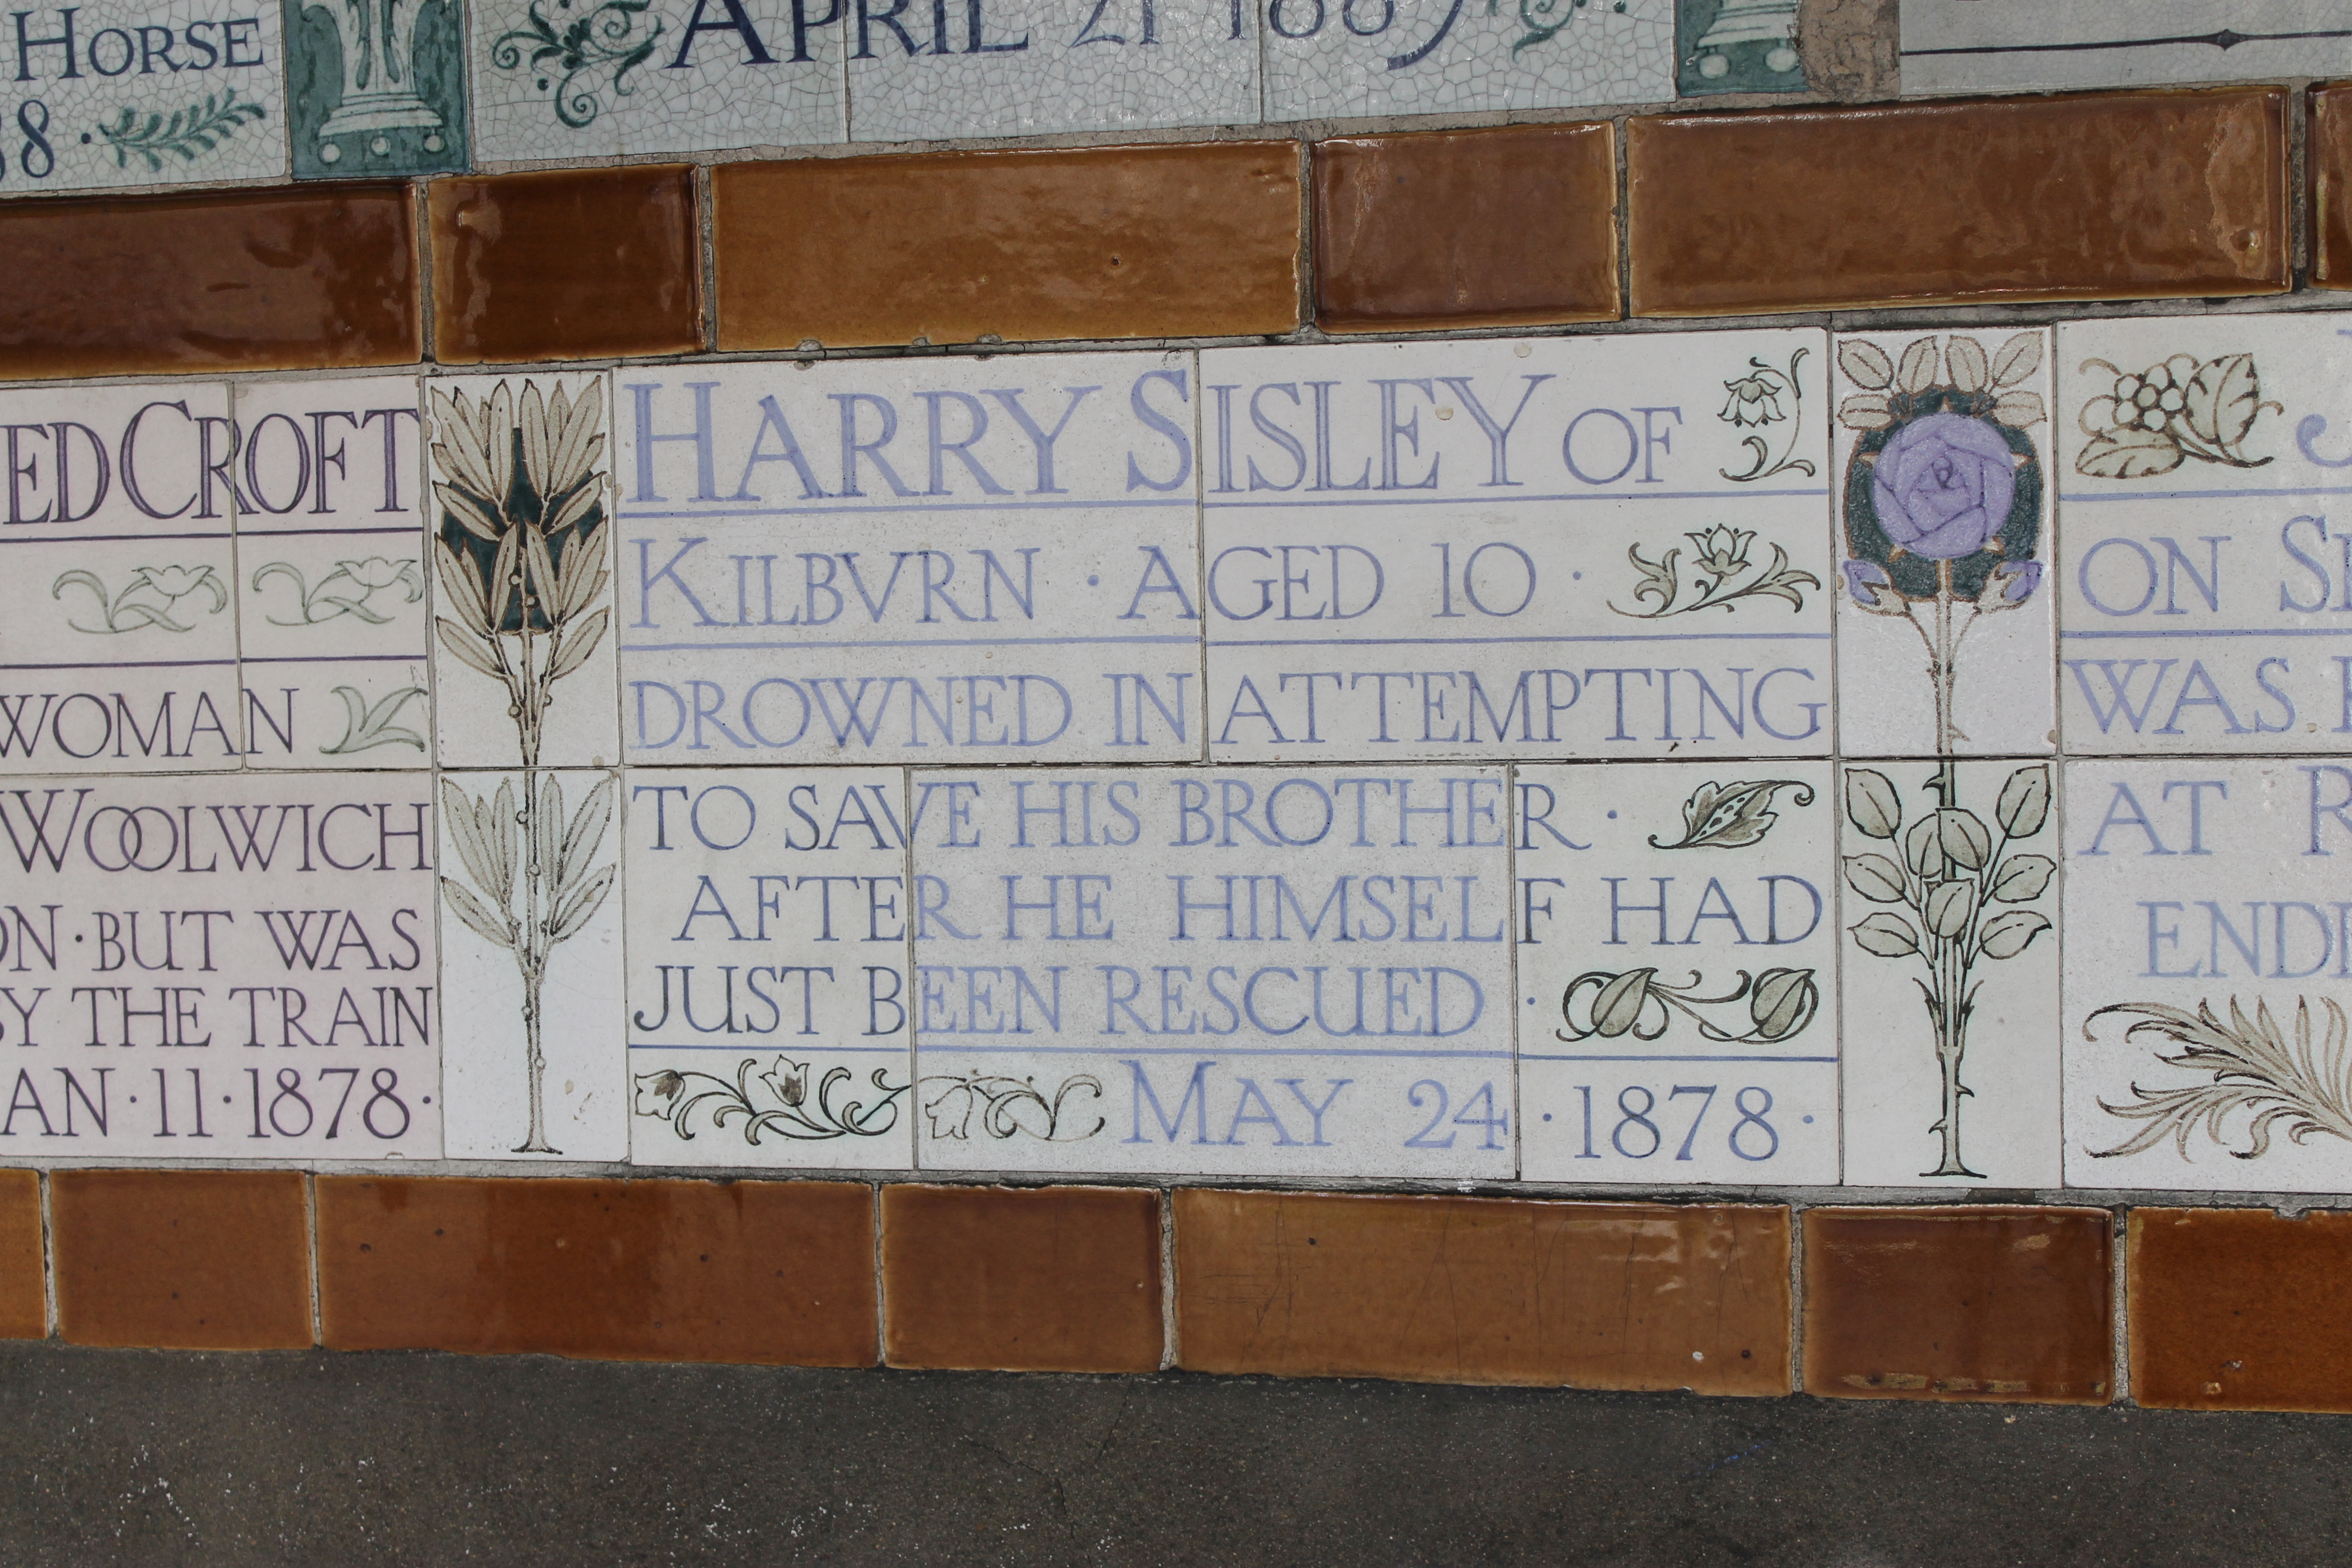 HORSE
APRIL 21 1889
ED CROFT
WOMAN
WOOLWICH
ON · BUT WAS
BY THE TRAIN
AN · 11 · 1878 ·
HARRY SISLEY OF
KILBVRN · AGED 10 ·
DROWNED IN ATTEMPTING
TO SAVE HIS BROTHER ·
AFTER HE HIMSELF HAD
JUST BEEN RESCUED ·
MAY 24 · 1878 ·
ON
WAS
AT